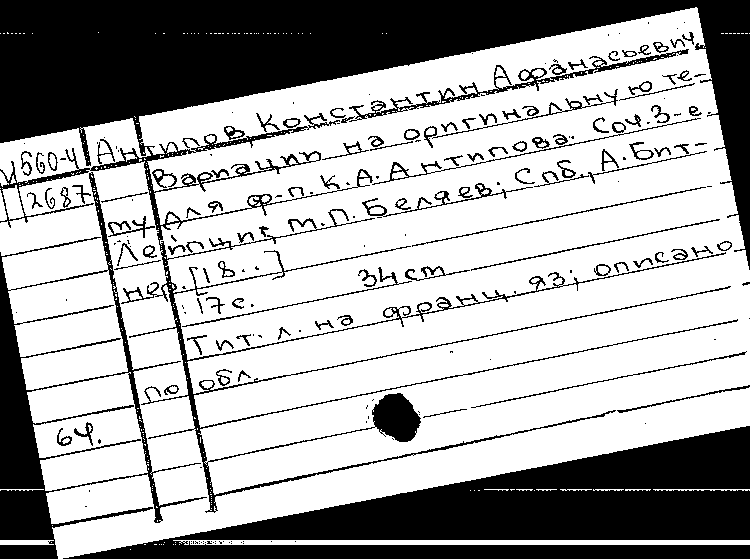 Антипов, Константин Афанасьевич.
И 560-4
2687
Вариации на оригинальную те-
му для ф-п. К.А. Антипова. Соч. 3-е
Лейпциг, М.П. Беляев; Спб., А. Бит-
нер. [18..]
17 с. 34 cm
Тит. л. на франц. яз; описано
по обл.
64.